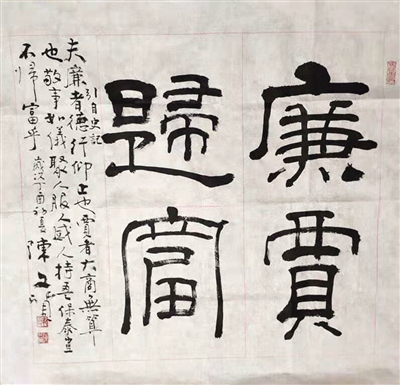 廉賈
歸富
引自史記
夫廉者德行仰止也賈者大商無算
也敬事如儀聚人服人感人持吾保泰豈
不帰富乎 歲次丁酉初春 陳文